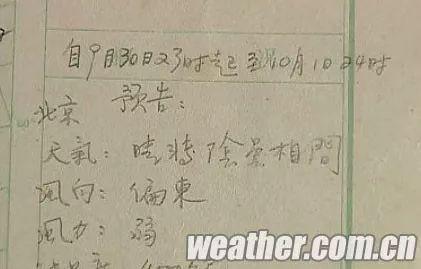 自9月30日23时起至10月1日24时
预告:
北京
天氣:晴轉陰曇相間
风向:偏東
风力:弱
weather.com.cn